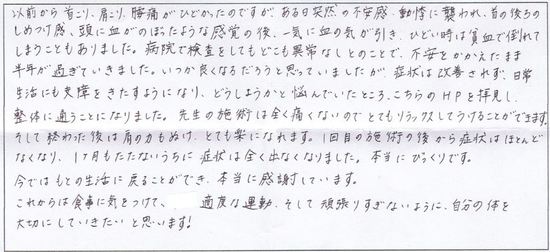 以前から首こり、肩こり、腰痛がひどかったのですが、ある日突然の不安感、動悸に襲われ、首の後ろの
しめつけ感、頭に血がのぼったような感覚の後、一気に血の気が引き、ひどい時は貧血で倒れて
しまうこともありました。病院で検査をしてもどこも異常なしとのことで、不安をかかえたまま
半年が過ぎていきました。いつか良くなるだろうと思っていましたが、症状は改善されず、日常
生活にも支障をきたすようになり、どうしようかと悩んでいたところ、こちらのHPを拝見し、
整体に通うことになりました。先生の施術は全く痛くないのでとてもリラックスしてうけることができます。
そして終わった後は肩の力もぬけ、とても楽になれます。1回目の施術の後から症状はほとんど
なくなり、1ヶ月もたたないうちに症状は全く出なくなりました。本当にびっくりです。
今ではもとの生活に戻ることができ、本当に感謝しています。
これからは食事に気をつけて、適度な運動、そして頑張りすぎないように、自分の体を
大切にしていきたいと思います!